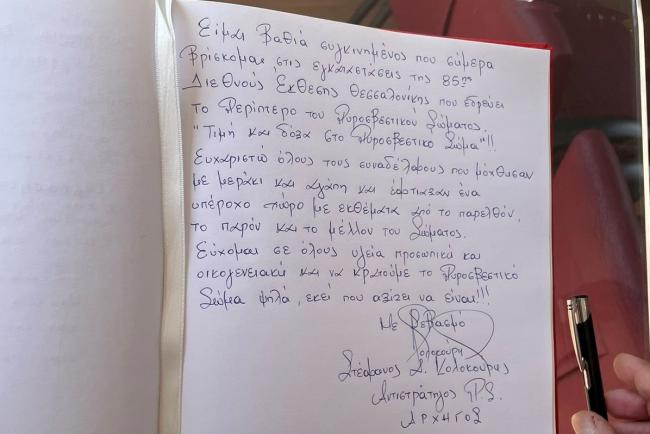 Είμαι βαθιά συγκινημένος που σήμερα
βρίσκομαι στις εγκαταστάσεις της 85ης
Διεθνούς Έκθεσης Θεσσαλονίκης που εδρεύει
το Περίπτερο του Πυροσβεστικού Σώματος.
"Τιμή και δόξα στο Πυροσβεστικό Σώμα"!!
Ευχαριστώ όλους τους συναδέλφους που μόχθησαν
με μεράκι και αγάπη και έφτιαξαν ένα
υπέροχο χώρο με εκθέματα από το παρελθόν,
το παρόν και το μέλλον του Σώματος.
Εύχομαι σε όλους υγεία προσωπικά και
οικογενειακά και να κρατούμε το Πυροσβεστικό
Σώμα ψηλά, εκεί που αξίζει να είναι!!!
Με Σεβασμό
Κολοκούρης
Στέφανος Δ. Κολοκούρης
Αντιστράτηγος Π.Σ.
ΑΡΧΗΓΟΣ